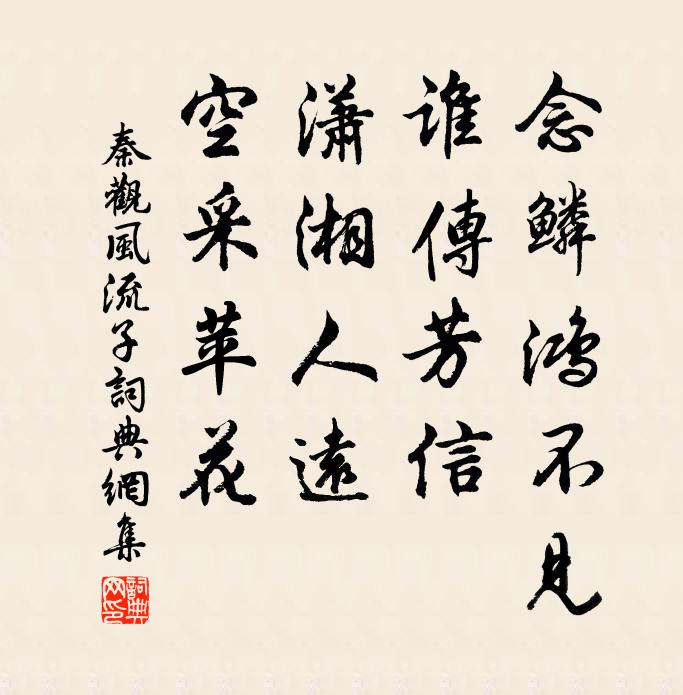 念鱗鴻不見
谁傳芳信
瀟湘人遠
空采苹花
秦觀風流子詞典網集
詞典网印